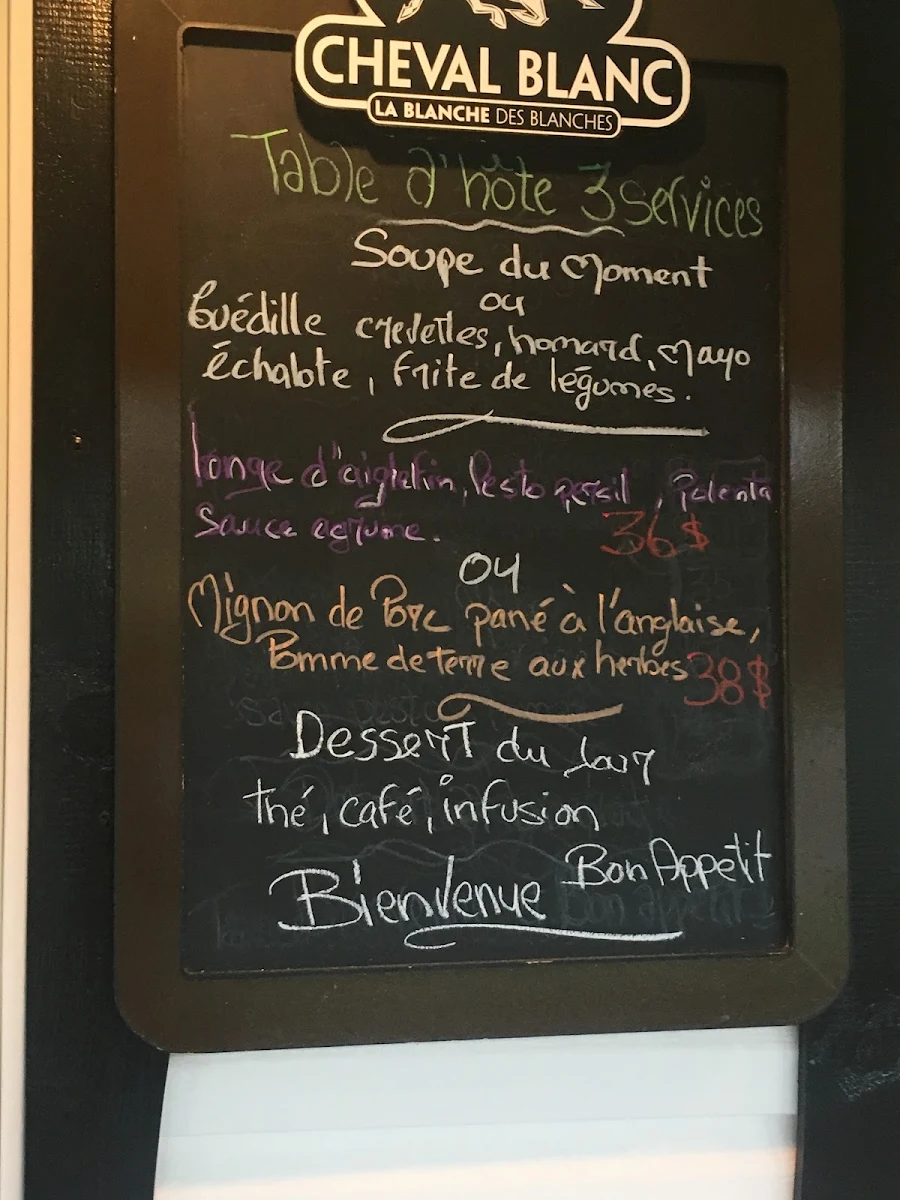 CHEVAL BLANC
LA BLANCHE DES BLANCHES
Table d'hôte 3 services
Soupe du Moment
ou
Guédille crevettes, homard, Mayo
échalote, frite de légumes.
Longe d'aiglefin, Pesto persil, Polenta
Sauce agrume. 36$
OU
Mignon de Porc pané à l'anglaise,
Pomme de terre aux herbes 38$
Dessert du Jour
thé, café, infusion
Bon Appétit
Bienvenue